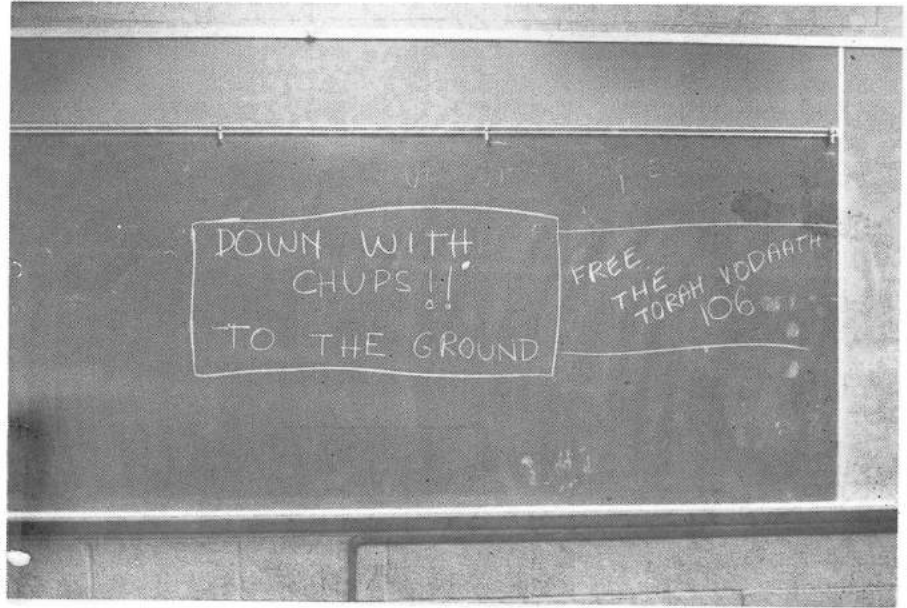 DOWN WITH
CHUPS!!
TO THE GROUND
FREE
THE
TORAH VODAATH
106